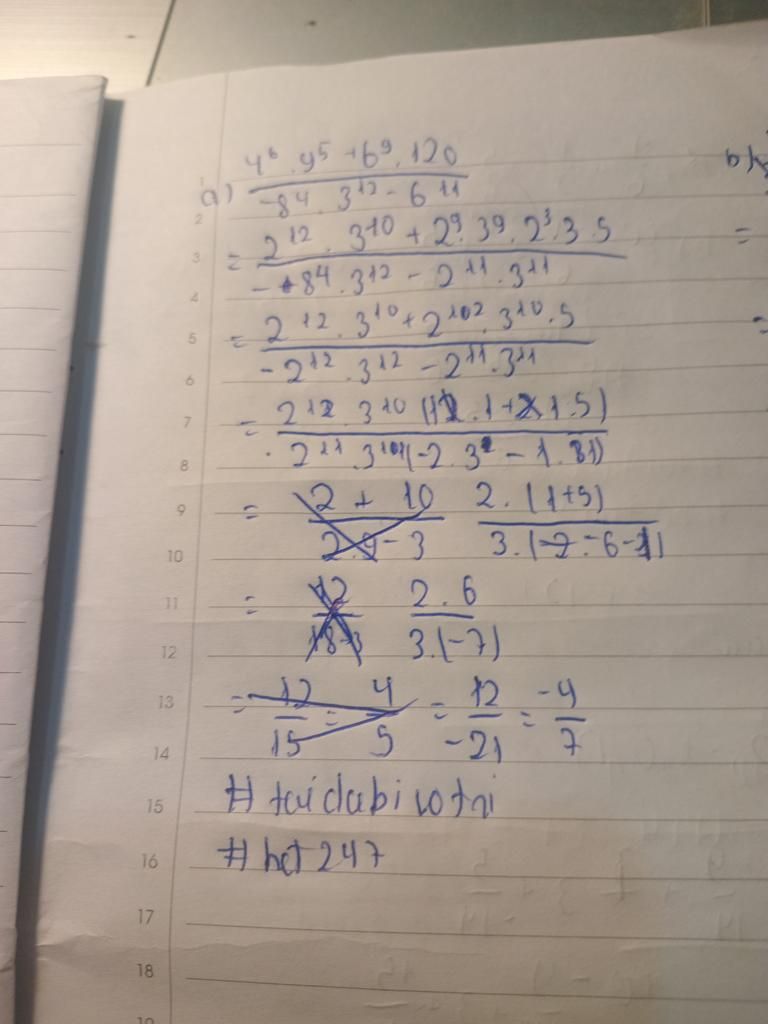 a) \frac{4^6 . 9^5 + 6^9 . 120}{-8^4 . 3^{12} - 6^{11}}
= \frac{2^{12} . 3^{10} + 2^9 . 3^9 . 2^3 . 3 . 5}{-8^4 . 3^{12} - 2^{11} . 3^{11}}
= \frac{2^{12} . 3^{10} + 2^{12} . 3^{10} . 5}{-2^{12} . 3^{12} - 2^{11} . 3^{11}}
= \frac{2^{12} . 3^{10} (1 . 1 + 1 . 5)}{2^{11} . 3^{11} (-2 . 3 - 1 . 1)}
= \frac{2 + 10}{2 . 9 - 3} \frac{2 . (1 + 5)}{3 . (-6 - 1)}
= \frac{12}{18 - 3} \frac{2 . 6}{3 . (-7)}
= \frac{12}{15} = \frac{4}{5} = \frac{12}{-21} = \frac{-4}{7}
# hct 247
b)
=
=
1
2
3
4
5
6
7
8
9
10
11
12
13
14
15
16
17
18
19